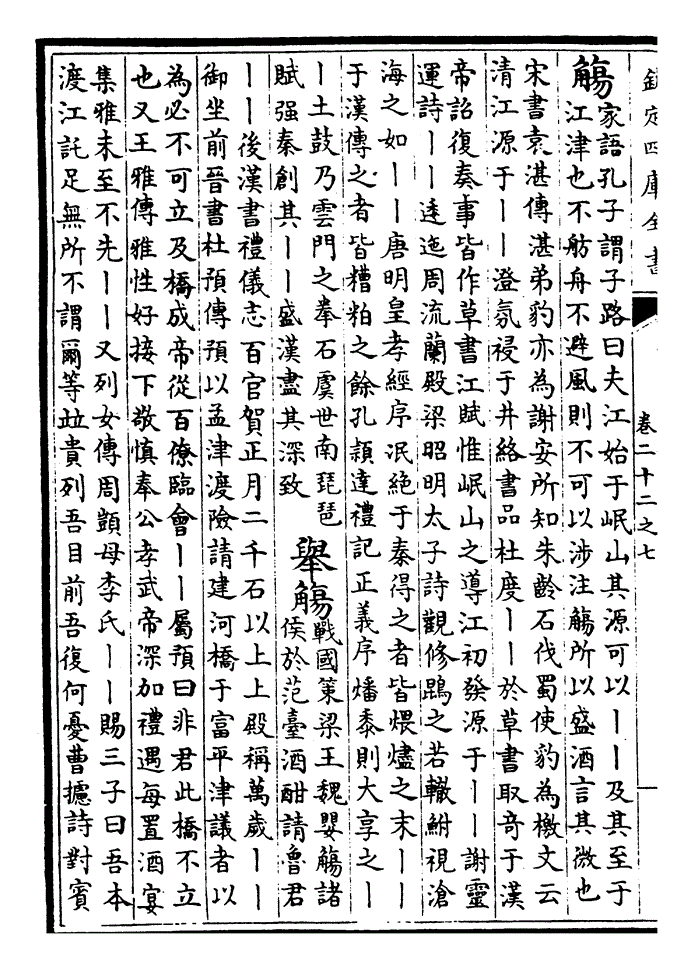 欽定四庫全書
卷二十二之七
觴家語孔子謂子路曰夫江始于岷山其源可以丨丨及其至于
江津也不舫舟不避風則不可以涉注觴所以盛酒言其微也
宋書袁湛傳湛弟豹亦為謝安所知朱齡石伐蜀使豹為檄文云
清江源于丨丨澄氛祲于井絡書品杜度丨丨於草書取奇于漢
帝詔復奏事皆作草書江賦惟岷山之導江初發源于丨丨謝靈
運詩丨丨逶迤周流蘭殿梁昭明太子詩觀修鵾之若轍鮒視滄
海之如丨丨唐明皇孝經序泯絕于秦得之者皆煨燼之末丨丨
于漢傳之者皆糟粕之餘孔頴達禮記正義序燔黍則大享之丨
丨土鼓乃雲門之拳石虞世南琵琶
賦强秦創其丨丨盛漢盡其深致
舉觴戰國策梁王魏嬰觴諸
侯於范臺酒酣請魯君
丨丨後漢書禮儀志百官賀正月二千石以上上殿稱萬歲丨丨
御坐前晉書杜預傳預以孟津渡險請建河橋于富平津議者以
為必不可立及橋成帝從百僚臨會丨丨屬預曰非君此橋不立
也又王雅傳雅性好接下敬慎奉公孝武帝深加禮遇每置酒宴
集雅未至不先丨丨又列女傳周顗母李氏丨丨賜三子曰吾本
渡江託足無所不謂爾等竝貴列吾目前吾復何憂曹攄詩對賓